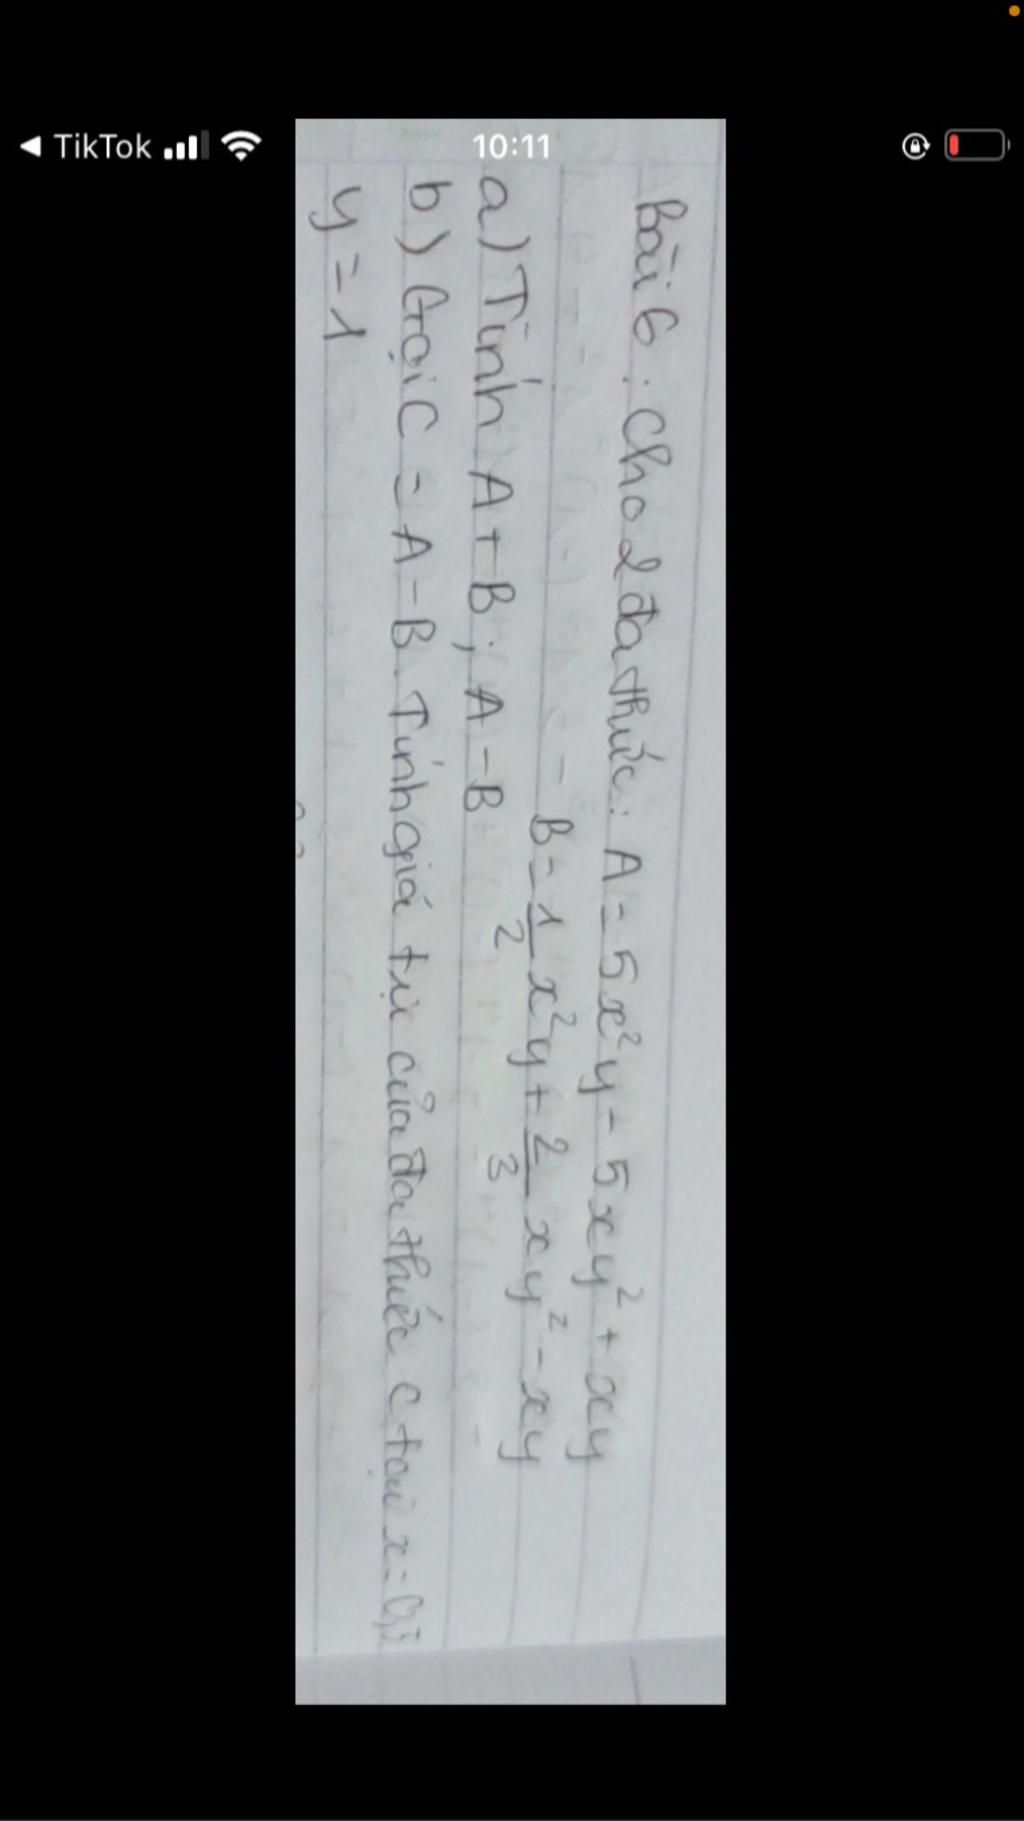 TikTok
10:11
Bài 6 : Cho 2 đa thức : A = 5x²y - 5xy² + xy
B = 1/2 x²y + 2/3 xy² - xy
a) Tính A + B ; A - B
b) Gọi C = A - B. Tính giá trị của đa thức C tại x =
y = 1